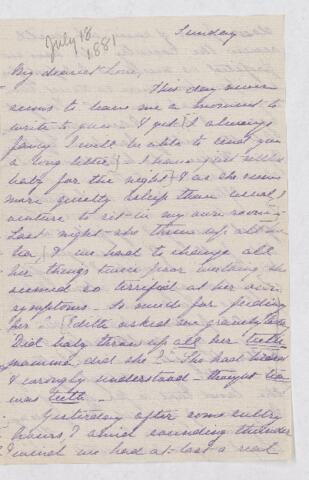 July 18
1881
Sunday
My dearest Love,
This day never
seems to leave me a moment to
write to you & yet I always
fancy I will be able to send you
a long letter. I have just settled
baby for the night & as she seems
more quietly asleep than usual I
venture to sit in my own room -
Last night she threw up all her
tea, & we had to change all
her things twice poor she
seemed so terrified at her own
symptoms - So much for feeding
her - Edith asked me gravely
Did baby throw up all her teeth
mamma, did she? - She had heard
& wrongly understood - thought tea
was teeth -
Yesterday after some sultry
hours, & amid sounding thunder
we had at last a real